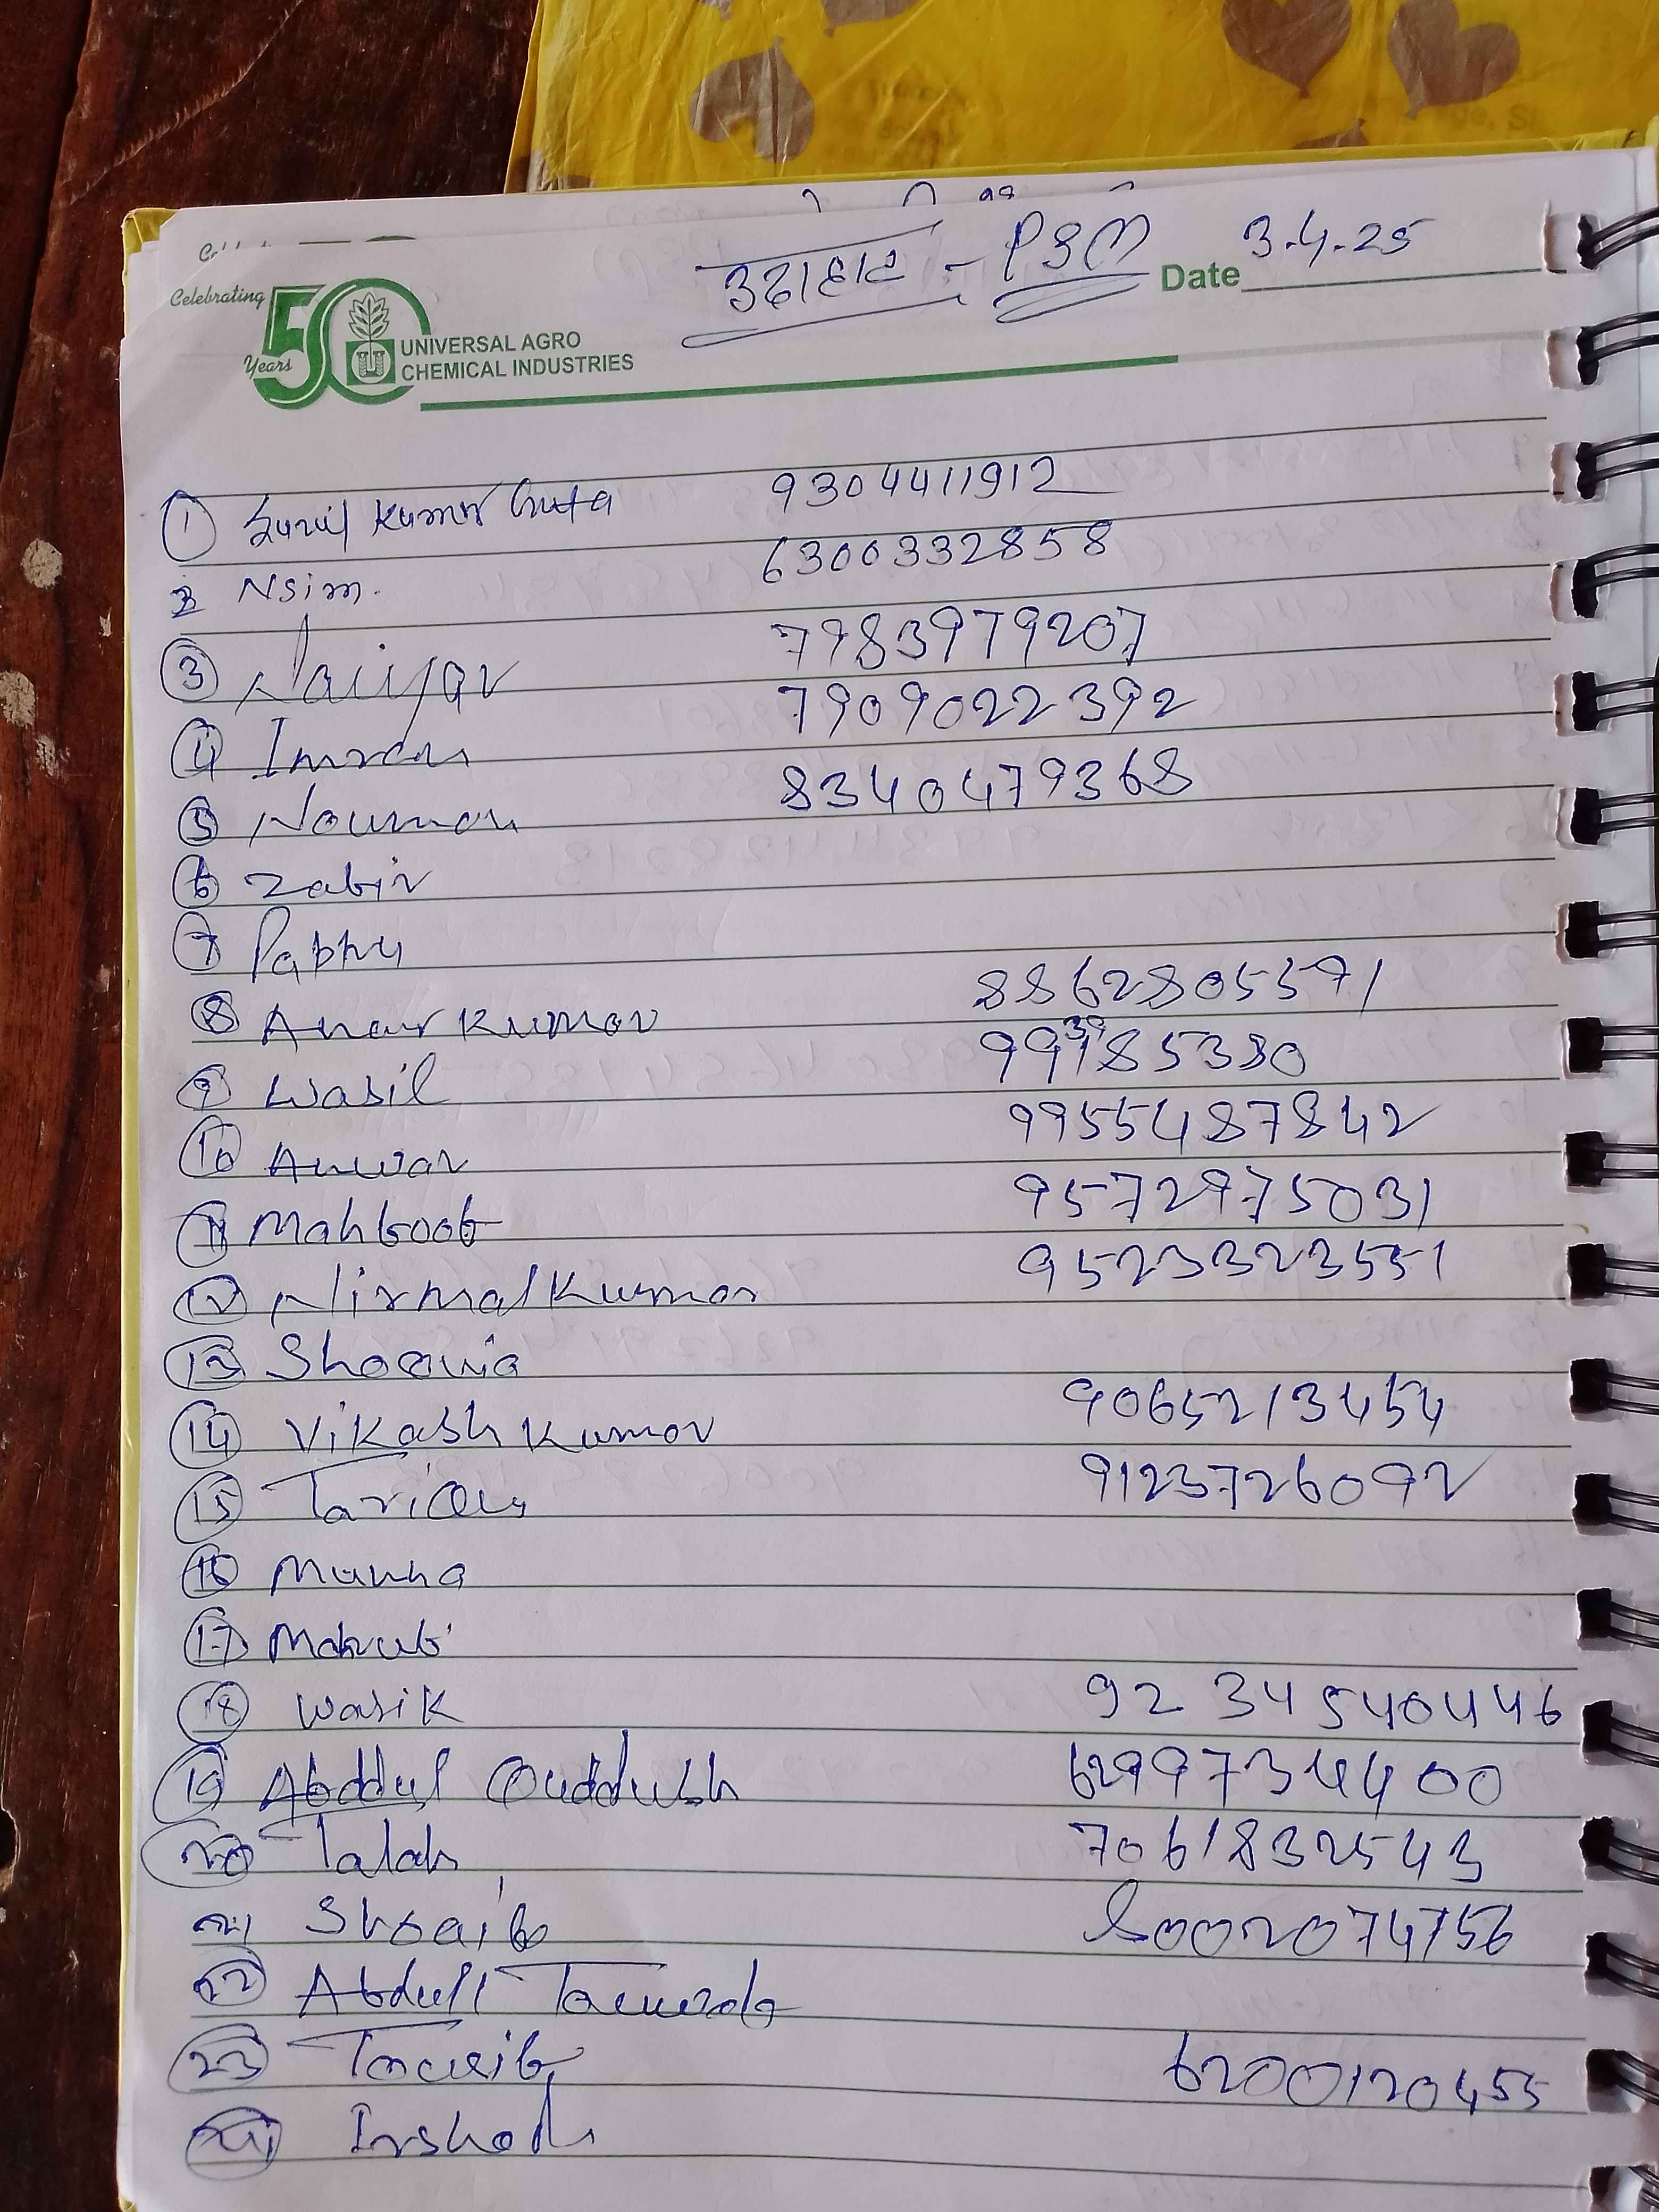 Celebrating
50 Years
UNIVERSAL AGRO
CHEMICAL INDUSTRIES
उदाहाट - PSM
Date 3.4.25
① Sunil Kumar Guta 9304411912
2 Nsim. 6300332858
③ Naiyar 7983979207
④ Imran 7909022392
⑤ Nouman 8340479368
⑥ Zabir
⑦ Pabhu
⑧ Kumar 8862805591
⑨ Wasil
⑩ Anwar 9955487842
⑪ Mahboob 9572975031
⑫ Nirmal Kumar 9523323551
⑬
⑭ Vikash Kumar 9065213454
⑮ Tarique 9123726092
⑯ Munna
⑰
⑱ Wasik 92 34540446
⑲ Abddul Quddush 6299734400
⑳ Talah 7061832543
21 Shoaib 8002074756
㉒ Abdull
㉓ 6200120455
㉔ Irshad